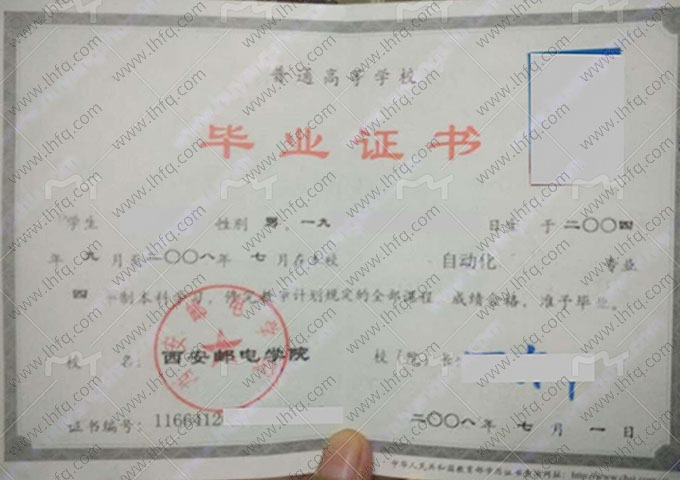 普通高等学校
毕业证书
学生 性别 男，一九 日生 于二〇〇四
年 九 月至二〇〇八年 七 月在本校 自动化 专业
四 年制本科学习，修完教学计划规定的全部课程，成绩合格，准予毕业。
校 名： 西安邮电学院 校（院）长：
证书编号：1166412 二〇〇八年 七 月 一 日
中华人民共和国教育部学历证书查询网址：http://www.chsi.com.cn
www.lhfq.com